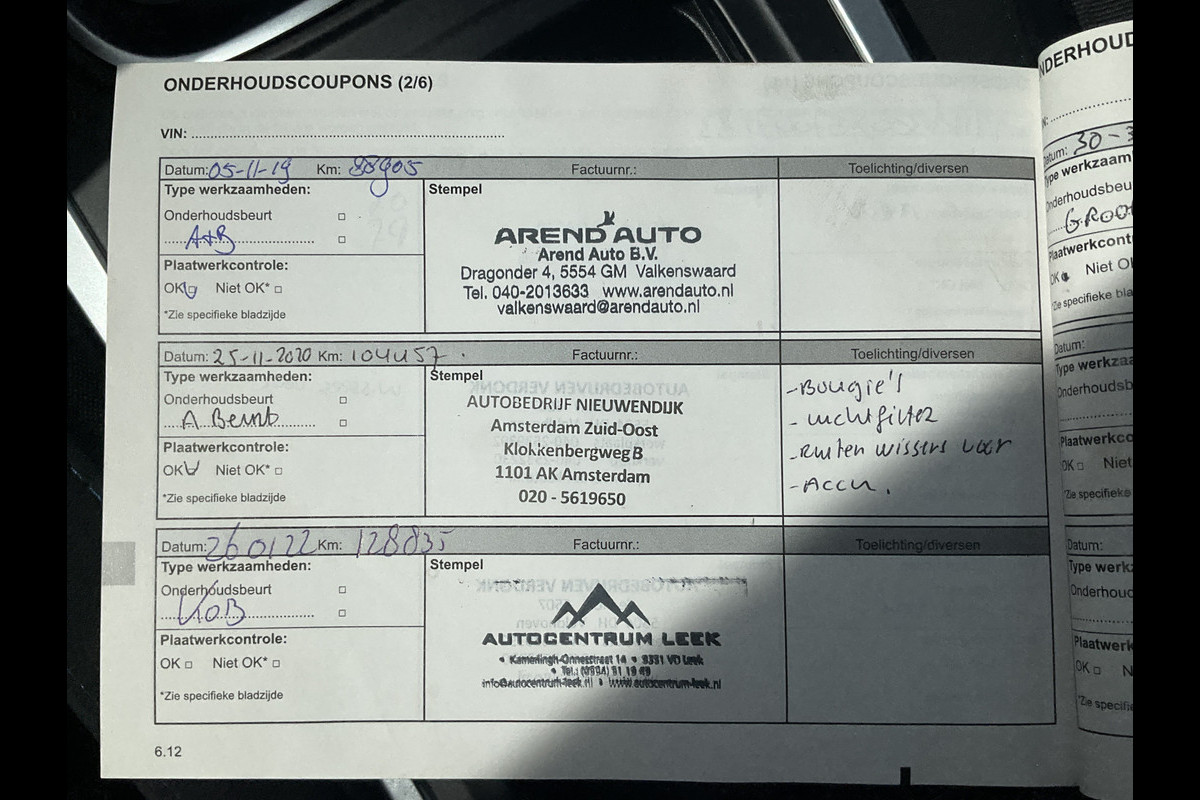 ONDERHOUDSCOUPONS (2/6)
VIN:
Datum: 05-11-19 Km: 88905 Factuurnr.: Toelichting/diversen
Type werkzaamheden:
Stempel
Onderhoudsbeurt
A+B
Plaatwerkcontrole:
OK Niet OK*
*Zie specifieke bladzijde
AREND AUTO
Arend Auto B.V.
Dragonder 4, 5554 GM Valkenswaard
Tel. 040-2013633 www.arendauto.nl
valkenswaard@arendauto.nl
Datum: 25-11-2020 Km: 104457 Factuurnr.: Toelichting/diversen
Type werkzaamheden:
Stempel
Onderhoudsbeurt
A Beurt
Plaatwerkcontrole:
OK Niet OK*
*Zie specifieke bladzijde
AUTOBEDRIJF NIEUWENDIJK
Amsterdam Zuid-Oost
KlokkenbergwegB
1101 AK Amsterdam
020 - 5619650
-Bougie's
- Luchtfilter
-Ruiten wissers voor
-Accu.
Datum: 260122 Km: 128835 Factuurnr.: Toelichting/diversen
Type werkzaamheden:
Stempel
Onderhoudsbeurt
Plaatwerkcontrole:
OK Niet OK*
*Zie specifieke bladzijde
AUTOCENTRUM LEEK
• Kamerlingh-Onnesstraat 14 • 9351 VD Leek
• Tel.: (0594) 51 19 49
info@autocentrum-leek.nl • www.autocentrum-leek.nl
6.12
ONDERHOUD
Datum: 30-3
Type werkzaam
Onderhoudsbeu
GROO
Plaatwerkcontr
OK Niet O
*Zie specifieke bla
Datum:
Type werkzaa
Onderhoudsb
Plaatwerkco
OK Niet
*Zie specifieke
Datum:
Type werkz
Onderhoud
Plaatwerk
OK N
*Zie specif